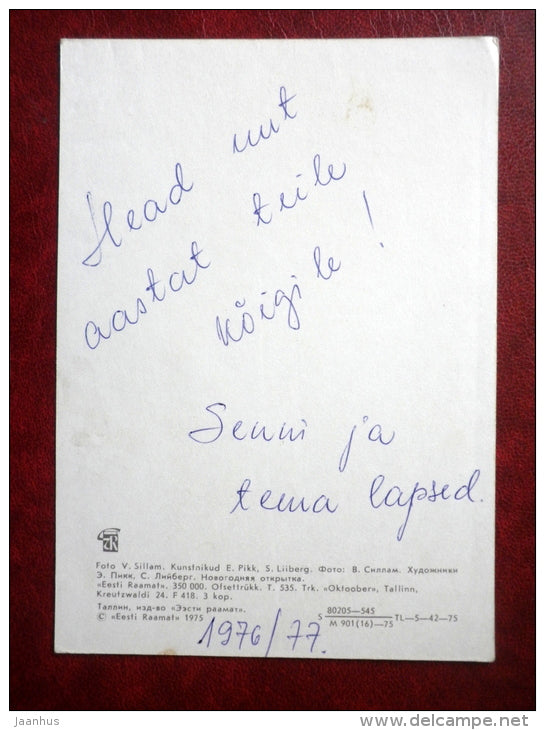 Head uut
aastat teile
kõigile!
Senni ja
tema lapsed.
Foto V. Sillam. Kunstnikud E. Pikk, S. Liiberg. Фото: В. Силлам. Художники
Э. Пикк, С. Лийберг. Новогодняя открытка.
«Eesti Raamat». 350 000. Ofsettrükk. T. 535. Trk. «Oktoober», Tallinn,
Kreutzwaldi 24. F 418. 3 kop.
Таллин, изд-во «Ээсти раамат».
© «Eesti Raamat» 1975
S 80205—545 TL—5—42—75
M 901(16)—75
1976/77.
jaanhus
www.delcampe.net